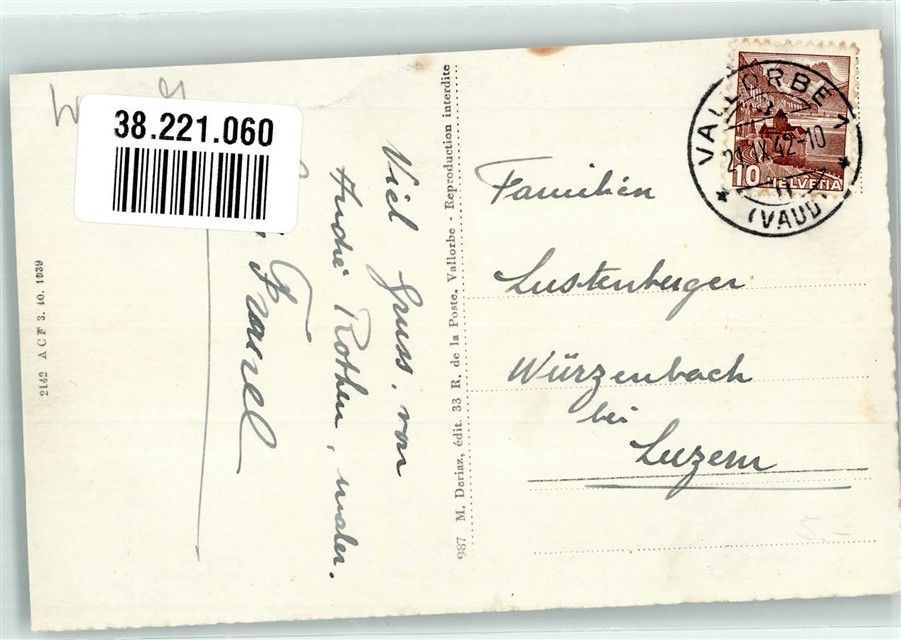 38.221.060
Viel Gruss. von
André Rothen, maler.
Farel
2142 A C F 3. 10. 1939
987 M. Deriaz, édit. 33 R. de la Poste, Vallorbe Reproduction interdite
VALLORBE 1
IX 42-10
(VAUD)
10 HELVETIA
Familien
Lustenberger
Würzenbach
bei
Luzern